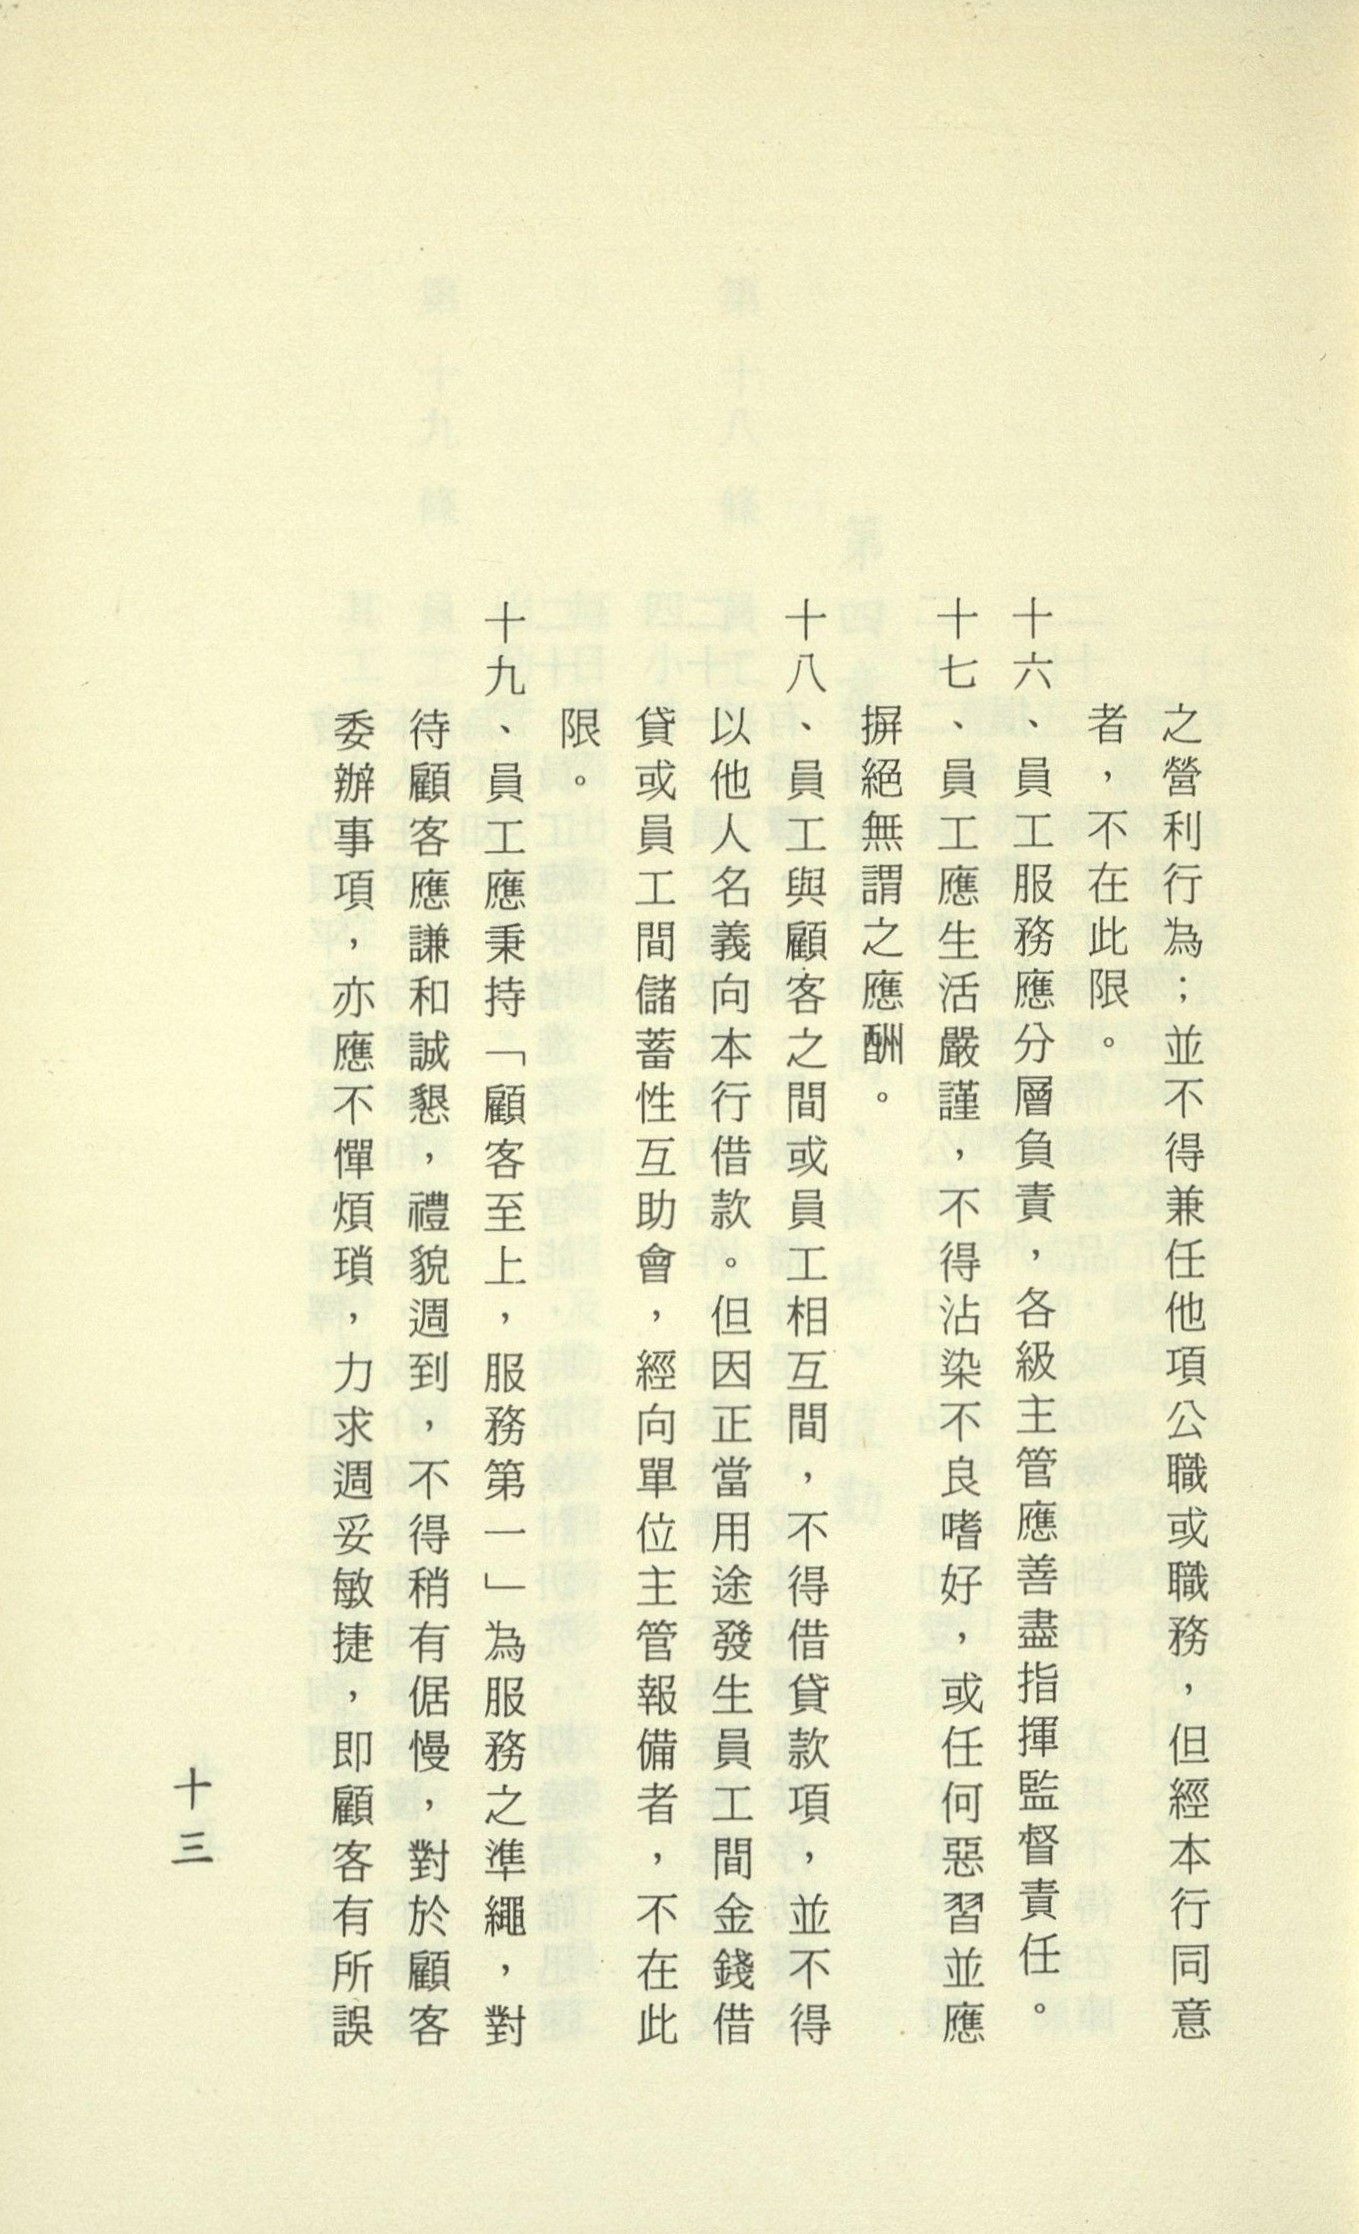 之營利行為；並不得兼任他項公職或職務，但經本行同意
者，不在此限。
十六、員工服務應分層負責，各級主管應善盡指揮監督責任。
十七、員工應生活嚴謹，不得沾染不良嗜好，或任何惡習並應
摒絕無謂之應酬。
十八、員工與顧客之間或員工相互間，不得借貸款項，並不得
以他人名義向本行借款。但因正當用途發生員工間金錢借
貸或員工間儲蓄性互助會，經向單位主管報備者，不在此
限。
十九、員工應秉持「顧客至上，服務第一」為服務之準繩，對
待顧客應謙和誠懇，禮貌週到，不得稍有倨慢，對於顧客
委辦事項，亦應不憚煩瑣，力求週妥敏捷，即顧客有所誤
十三